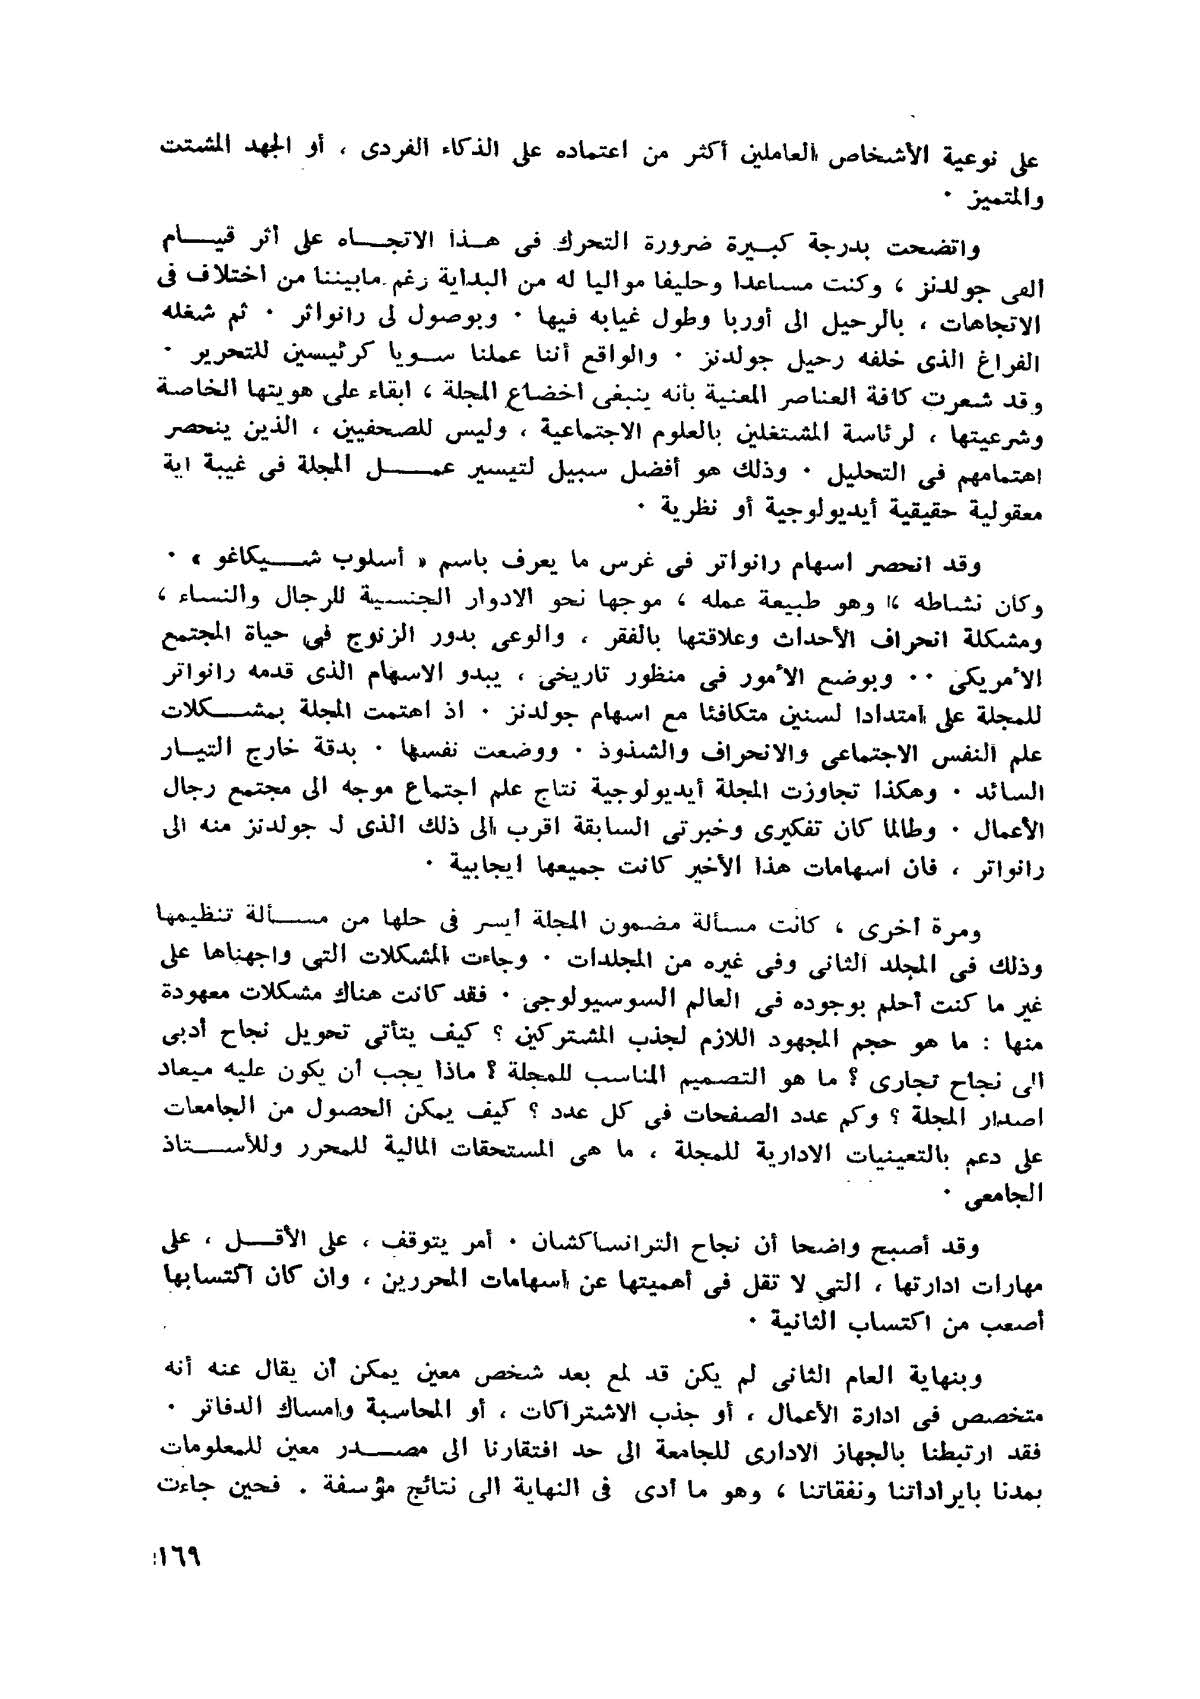 على نوعية الأشخاص العاملين أكثر من اعتماده على الذكاء الفردى ، أو الجهد المشتت
والمتميز ٠
واتضحت بدرجة كبيرة ضرورة التحرك فى هذا الاتجاه على أثر قيام
الفى جولدنز ، وكنت مساعدا وحليفا مواليا له من البداية رغم مابيننا من اختلاف فى
الاتجاهات ، بالرحيل الى أوربا وطول غيابه فيها ٠ وبوصول لى رانواثر ٠ ثم شغله
الفراغ الذى خلفه رحيل جولدنز ٠ والواقع أننا عملنا سويا كرئيسين للتحرير ٠
وقد شعرت كافة العناصر المعنية بأنه ينبغى اخضاع المجلة ، ابقاء على هويتها الخاصة
وشرعيتها ، لرئاسة المشتغلين بالعلوم الاجتماعية ، وليس للصحفيين ، الذين ينحصر
اهتمامهم فى التحليل ٠ وذلك هو أفضل سبيل لتيسير عمل المجلة فى غيبة اية
معقولية حقيقية أيديولوجية أو نظرية ٠
وقد انحصر اسهام رانواتر فى غرس ما يعرف باسم « أسلوب شيكاغو » ٠
وكان نشاطه ، وهو طبيعة عمله ، موجها نحو الادوار الجنسية للرجال والنساء ،
ومشكلة انحراف الأحداث وعلاقتها بالفقر ، والوعى بدور الزنوج فى حياة المجتمع
الأمريكى ٠٠ وبوضع الأمور فى منظور تاريخى ، يبدو الاسهام الذى قدمه رانواتر
للمجلة على امتدادا لسنين متكافئا مع اسهام جولدنز ٠ اذ اهتمت المجلة بمشكلات
علم النفس الاجتماعى والانحراف والشذوذ ٠ ووضعت نفسها ٠ بدقة خارج التيار
السائد ٠ وهكذا تجاوزت المجلة أيديولوجية نتاج علم اجتماع موجه الى مجتمع رجال
الأعمال ٠ وطالما كان تفكيرى وخبرتى السابقة اقرب الى ذلك الذى لـ جولدنز منه الى
رانواتر ، فان اسهامات هذا الأخير كانت جميعها ايجابية ٠
ومرة أخرى ، كانت مسألة مضمون المجلة أيسر فى حلها من مسألة تنظيمها
وذلك فى المجلد الثانى وفى غيره من المجلدات ٠ وجاءت المشكلات التى واجهناها على
غير ما كنت أحلم بوجوده فى العالم السوسيولوجى ٠ فقد كانت هناك مشكلات معهودة
منها : ما هو حجم المجهود اللازم لجذب المشتركين ؟ كيف يتأتى تحويل نجاح أدبى
الى نجاح تجارى ؟ ما هو التصميم المناسب للمجلة ؟ ماذا يجب أن يكون عليه ميعاد
اصدار المجلة ؟ وكم عدد الصفحات فى كل عدد ؟ كيف يمكن الحصول من الجامعات
على دعم بالتعينيات الادارية للمجلة ، ما هى المستحقات المالية للمحرر وللأستاذ
الجامعى ٠
وقد أصبح واضحا أن نجاح الترانساكشان ٠ أمر يتوقف ، على الأقل ، على
مهارات ادارتها ، التى لا تقل فى أهميتها عن اسهامات المحررين ، وان كان اكتسابها
أصعب من اكتساب الثانية ٠
وبنهاية العام الثانى لم يكن قد لمع بعد شخص معين يمكن أن يقال عنه أنه
متخصص فى ادارة الأعمال ، أو جذب الاشتراكات ، أو المحاسبة وامساك الدفاتر ٠
فقد ارتبطنا بالجهاز الادارى للجامعة الى حد افتقارنا الى مصدر معين للمعلومات
بمدنا بايراداتنا ونفقاتنا ، وهو ما أدى فى النهاية الى نتائج مؤسفة . فحين جاءت
١٦٩